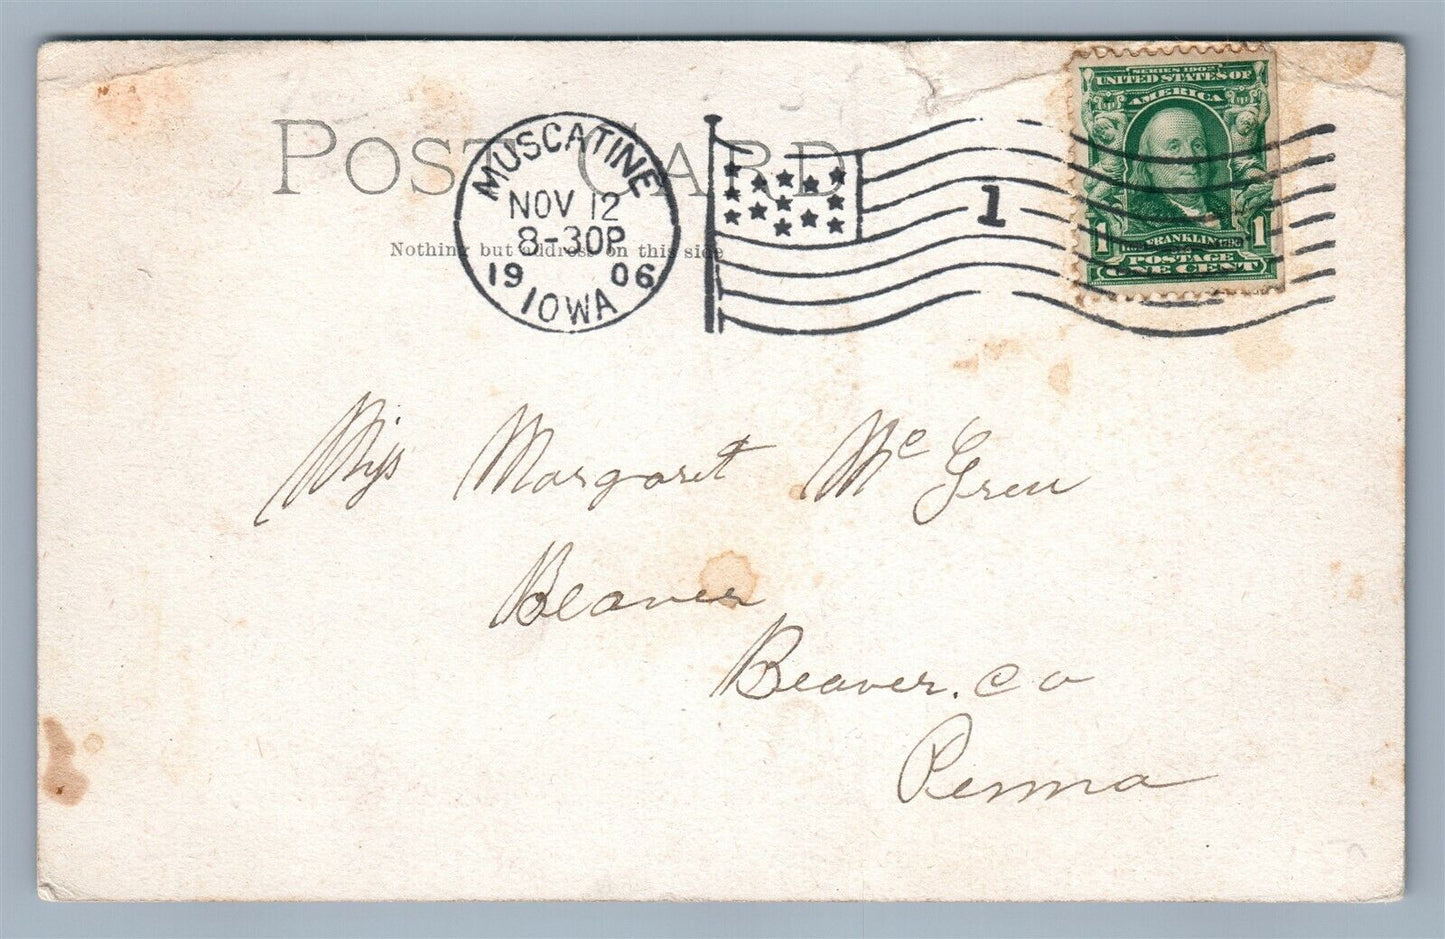 POST CARD
Nothing but address on this side
MUSCATINE
NOV 12
8-30P
1906
IOWA
1
SERIES 1902
UNITED STATES OF
AMERICA
1 FRANKLIN 1790 1
POSTAGE
ONE CENT
Miss Margaret Mc Grew
Beaver
Beaver. Co
Penna